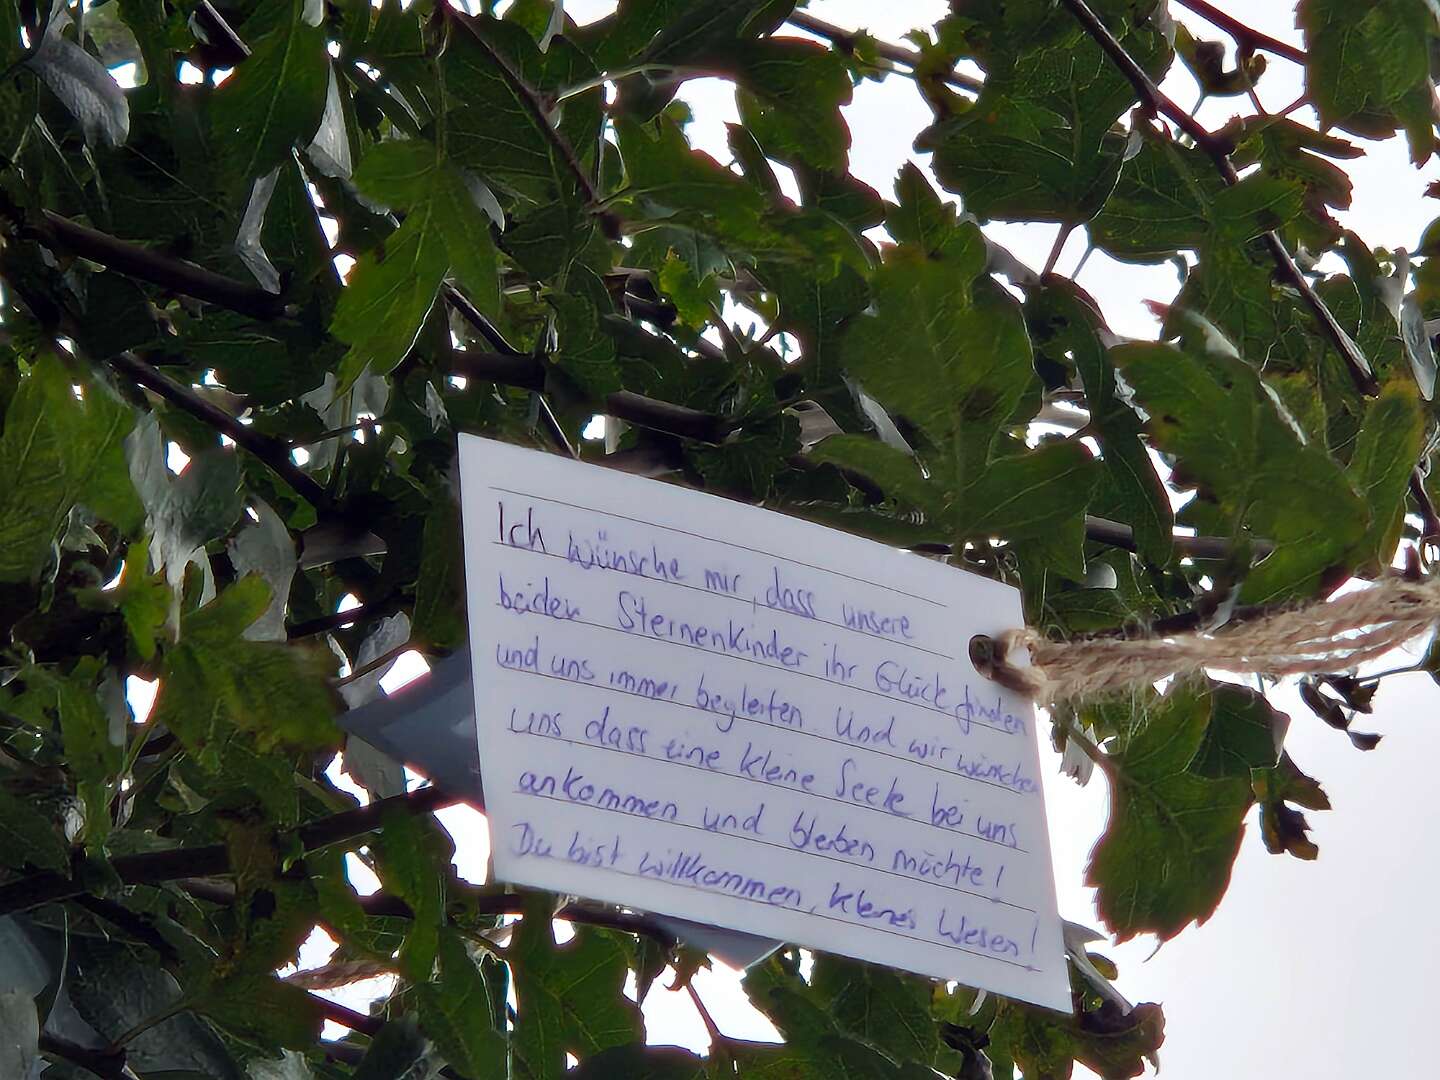 Ich wünsche mir, dass unsere
beiden Sternenkinder ihr Glück finden
und uns immer begleiten. Und wir wünschen
uns, dass eine kleine Seele bei uns
ankommen und bleiben möchte!
Du bist willkommen, kleines Wesen!